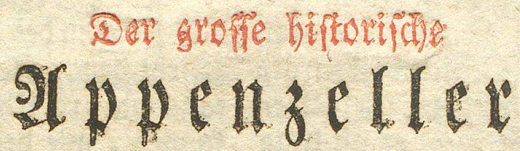 Der groſſe hiſtoriſche
Appenzeller